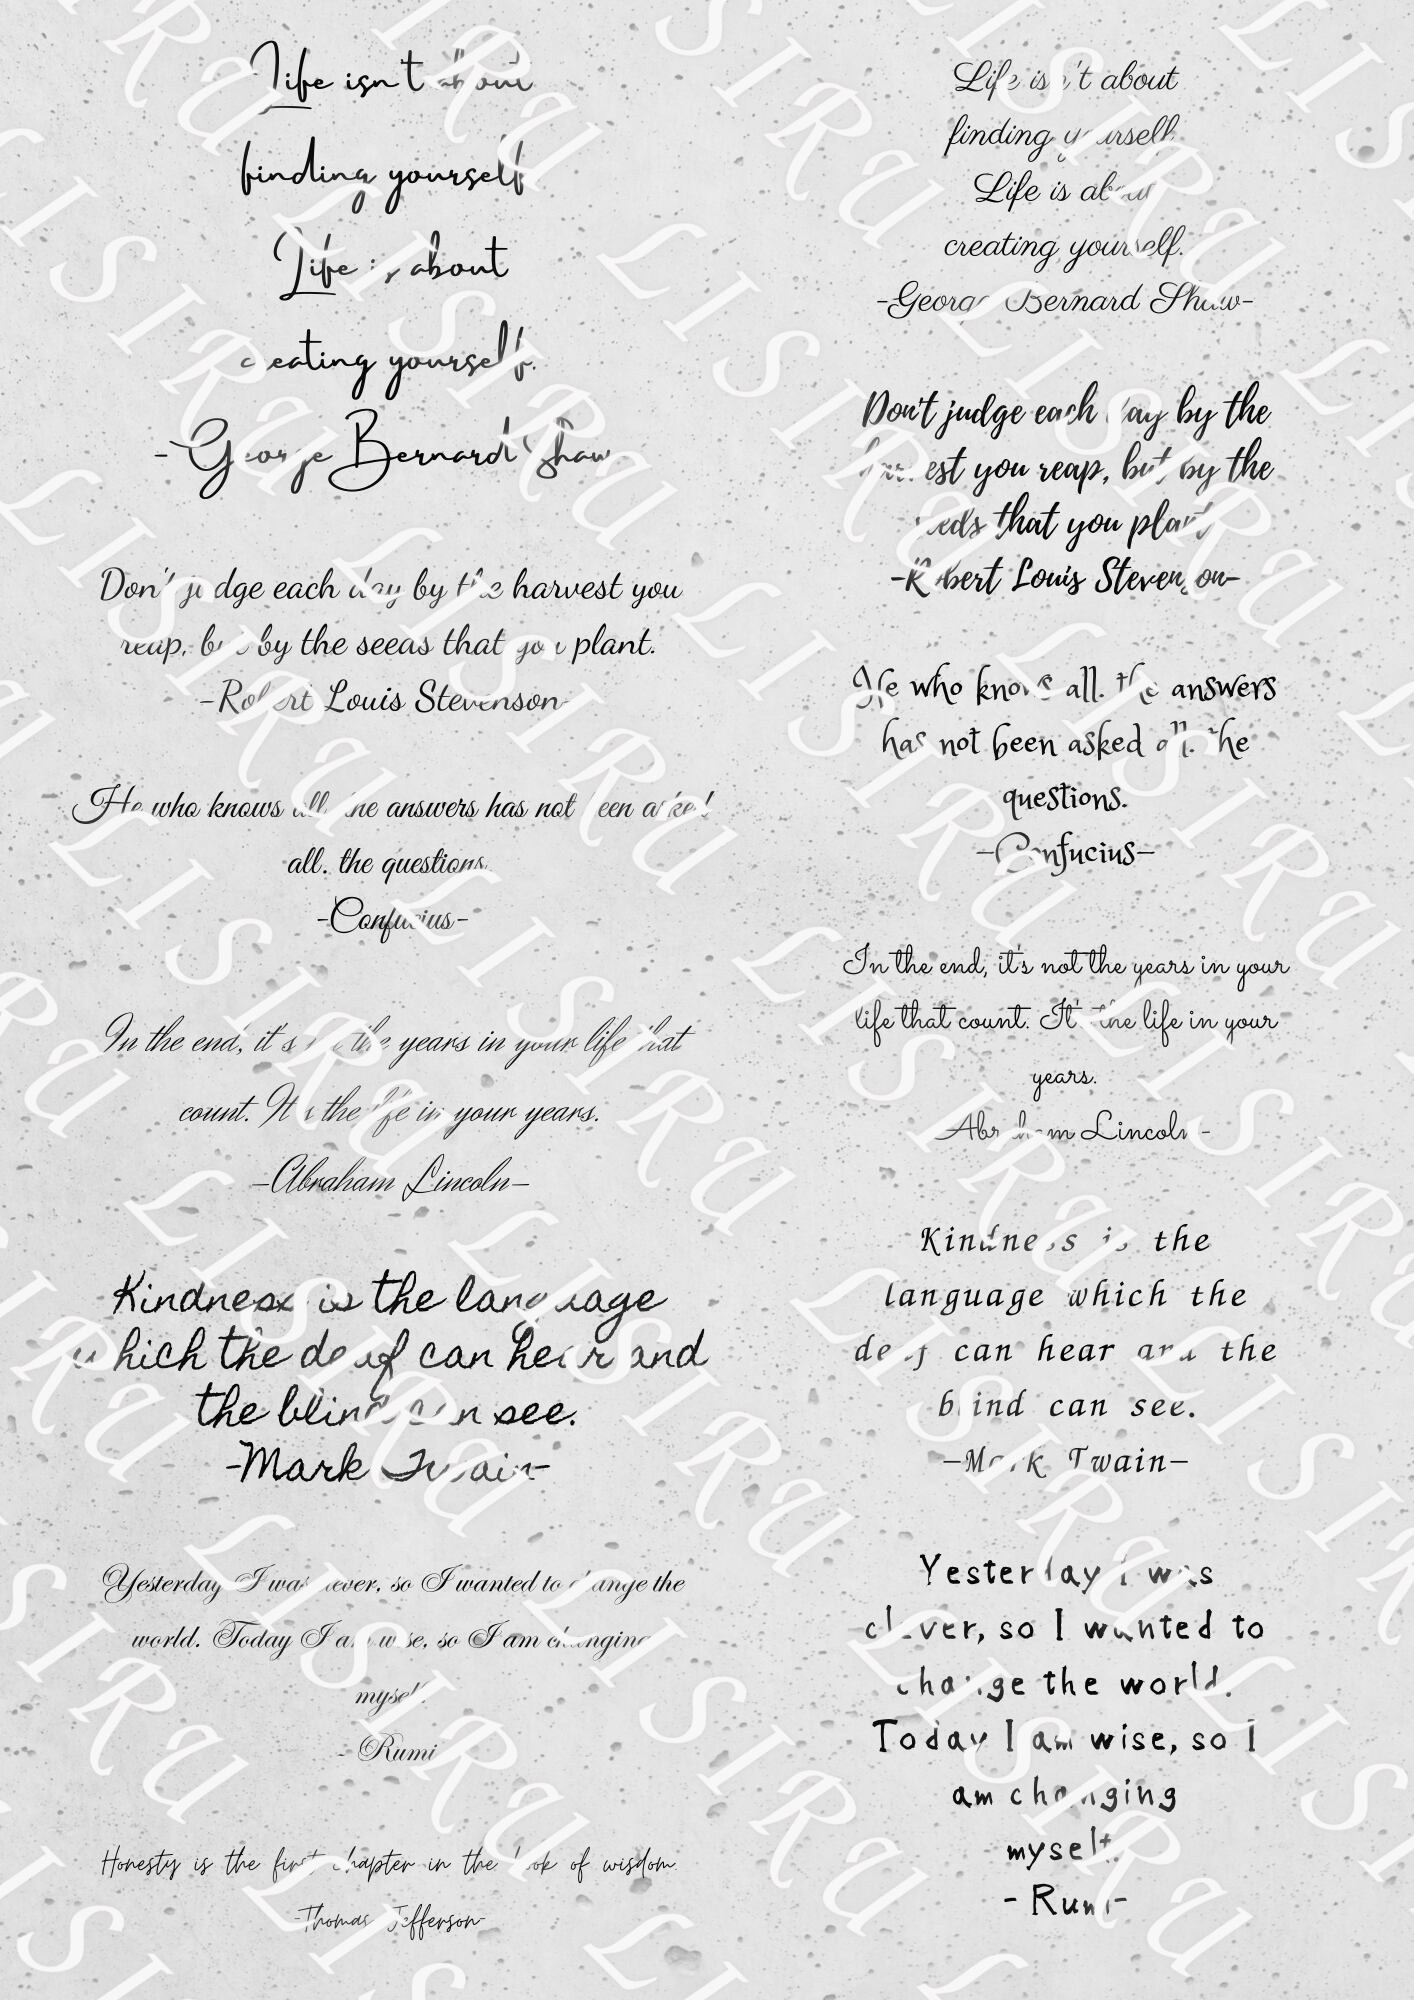 Life isn't about
finding yourself
Life is about
creating yourself.
-George Bernard Shaw-
Don't judge each day by the harvest you
reap, but by the seeds that you plant.
-Robert Louis Stevenson-
He who knows all. the answers has not been asked
all. the questions.
-Confucius-
In the end, it's not the years in your life that
count. It's the life in your years.
-Abraham Lincoln-
Kindness is the language
which the deaf can hear and
the blind can see.
-Mark Twain-
Yesterday I was clever, so I wanted to change the
world. Today I am wise, so I am changing
myself.
- Rumi
Honesty is the first chapter in the book of wisdom.
-Thomas Jefferson-
Life isn't about
finding yourself.
Life is about
creating yourself.
-George Bernard Shaw-
Don't judge each day by the
harvest you reap, but by the
seeds that you plant
-Robert Louis Stevenson-
He who knows all. the answers
has not been asked all. the
questions.
-Confucius-
In the end, it's not the years in your
life that count. It's the life in your
years.
-Abraham Lincoln-
Kindness is the
language which the
deaf can hear and the
blind can see.
-Mark Twain-
Yesterday I was
clever, so I wanted to
change the world.
Today I am wise, so I
am changing
myself.
- Rumi-
LISIRU